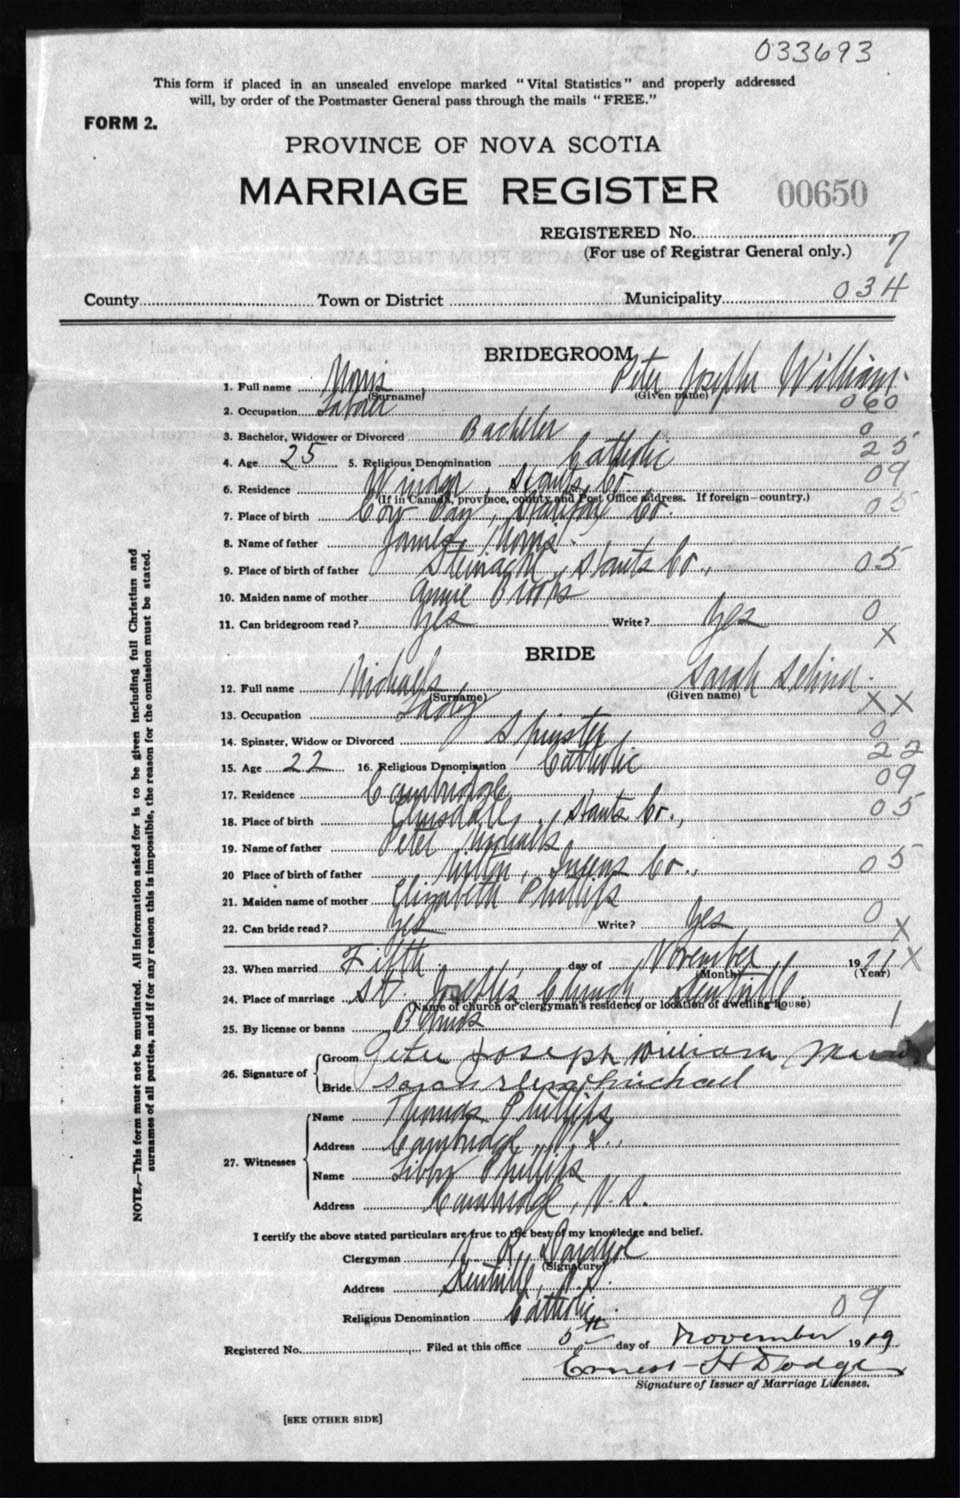 033693
This form if placed in an unsealed envelope marked "Vital Statistics" and properly addressed
will, by order of the Postmaster General pass through the mails "FREE."
FORM 2.
PROVINCE OF NOVA SCOTIA
MARRIAGE REGISTER 00650
REGISTERED No.
(For use of Registrar General only.) 7
County Town or District Municipality 034
BRIDEGROOM
1. Full name Morris Peter Joseph William
(Surname) (Given name)
2. Occupation Laborer 060
3. Bachelor, Widower or Divorced Bachelor 0
4. Age 25 5. Religious Denomination Catholic 25
6. Residence Windsor, Hants Co. 09
(If in Canada, province, county and Post Office address. If foreign—country.)
7. Place of birth Cow Bay, Halifax Co. 05
8. Name of father James Morris
9. Place of birth of father Hants Co., 05
10. Maiden name of mother Annie
11. Can bridegroom read? Yes Write? Yes 0
X
BRIDE
12. Full name Michaels Sarah Selina
(Surname) (Given name)
13. Occupation XX
14. Spinster, Widow or Divorced Spinster 0
15. Age 22 16. Religious Denomination Catholic 22
17. Residence Cambridge 09
18. Place of birth Elmsdale, Hants Co., 05
19. Name of father Peter Michaels
20 Place of birth of father Milton, Queens Co., 05
21. Maiden name of mother Elizabeth Phillips
22. Can bride read? Yes Write? Yes 0
X
23. When married Fifth day of November 19 X
(Month) (Year)
24. Place of marriage St Joseph's Church Kentville.
(Name of church or clergyman's residence or location of dwelling house)
25. By license or banns Banns 1
26. Signature of Groom Peter Joseph William
Bride Sarah michael
27. Witnesses
Name Thomas Phillips
Address Cambridge, N. S.,
Name Libby Phillips
Address Cambridge, N. S.
I certify the above stated particulars are true to the best of my knowledge and belief.
Clergyman
(Signature)
Address Kentville, N. S.
Religious Denomination Catholic. 09
Registered No. Filed at this office 5th day of November 1919
Ernest H Dodge
Signature of Issuer of Marriage Licenses.
[SEE OTHER SIDE]
NOTE.—This form must not be mutilated. All information asked for is to be given including full Christian and
surnames of all parties, and if for any reason this is impossible, the reason for the omission must be stated.